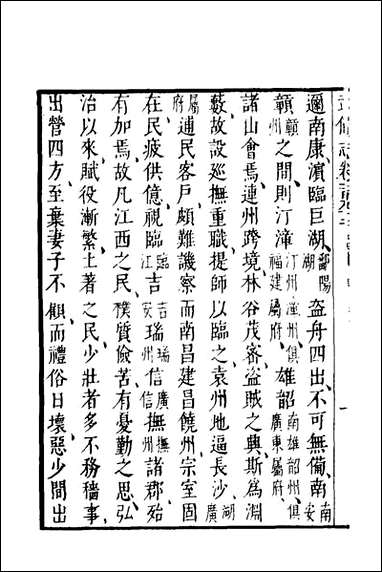 武備志卷
邇南康濵臨巨湖鄱陽湖盜舟四出不可無備南南安
贑贑州之間則汀漳汀州漳州俱福建屬府雄韶南雄韶州俱廣東屬府
諸山會焉連州跨境林谷茂宻盜賊之興斯為淵
藪故設巡撫重職提師以臨之袁州地逼長沙湖廣
屬府逋民客戶頗難譏察而南昌建昌饒州宗室固
在民疲供億視臨臨江吉吉安瑞瑞州信廣信撫撫州諸郡殆
有加焉故凡江西之民樸質儉苦有憂勤之思弘
治以來賦役漸繁土著之民少壯者多不務穡事
出營四方至棄妻子不顧而禮俗日壞惡少間出